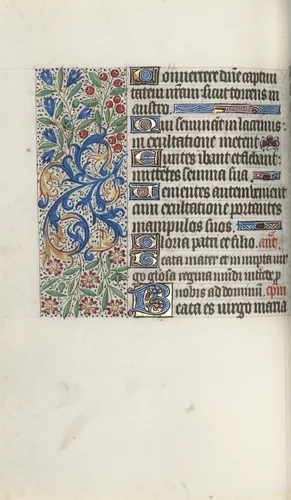 Convertere dñe captivi
tatem nr̃am: sicut torrens in
austro.
Qui seminãt in lacrimis:
in exultatione metent.
Euntes ibant et flebant:
mittẽtes semina sua.
Venientes autem venient
cum exultatione portantes
manipulos suos.
Gloria patri et filio. añ.
Beata mater et innupta vir
go gloriosa regina mũdi
nobis ad dominũ.
Beata es virgo maria